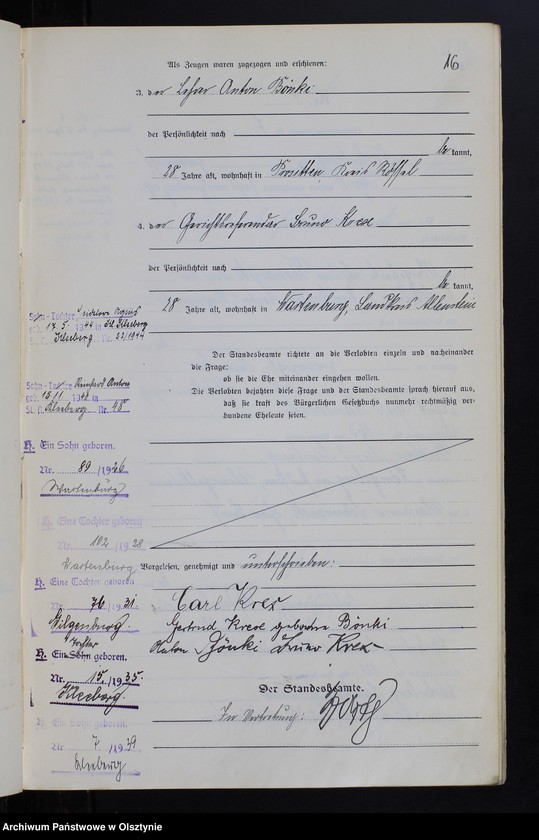 16
Als Zeugen waren zugezogen und erschienen:
3. der Lehrer Anton Bönki
der Persönlichkeit nach
be kannt,
28 Jahre alt, wohnhaft in Prositten Kreis Rössel
4. der Gerichtsreferendar Bruno Krex
der Persönlichkeit nach
be kannt,
28 Jahre alt, wohnhaft in Wartenburg, Landkreis Allenstein
Der Standesbeamte richtete an die Verlobten einzeln und nacheinander
die Frage:
ob sie die Ehe miteinander eingehen wollen.
Die Verlobten bejahten diese Frage und der Standesbeamte sprach hierauf aus,
daß sie kraft des Bürgerlichen Gesetzbuchs nunmehr rechtmäßig ver-
bundene Eheleute seien.
Vorgelesen, genehmigt und unterschrieben:
Carl Krex
Gertrud Krex geborene Bönki
Anton Bönki Bruno Krex
Der Standesbeamte.
In Vertretung:
Sohn - Tochter
geb. 17. 5. 1944 in Kl. Kleeberg
Kleeberg Nr. 22/1944
Sohn - Tochter Reinhard Anton
geb. 15 11 in
St. A. Kleeberg Nr. 48
H. Ein Sohn geboren.
Nr. 89 /1926
Wartenburg
H. Eine Tochter geboren
Nr. 102 /1928
Wartenburg
H. Eine Tochter geboren
Nr. 76 /1931
Hilgenburg
Tochter
H. Ein Sohn geboren.
Nr. 15, /1935.
Kleeberg.
H. Ein Sohn geboren.
Nr. 7 /1939
Kleeberg
Archiwum Państwowe w Olsztynie